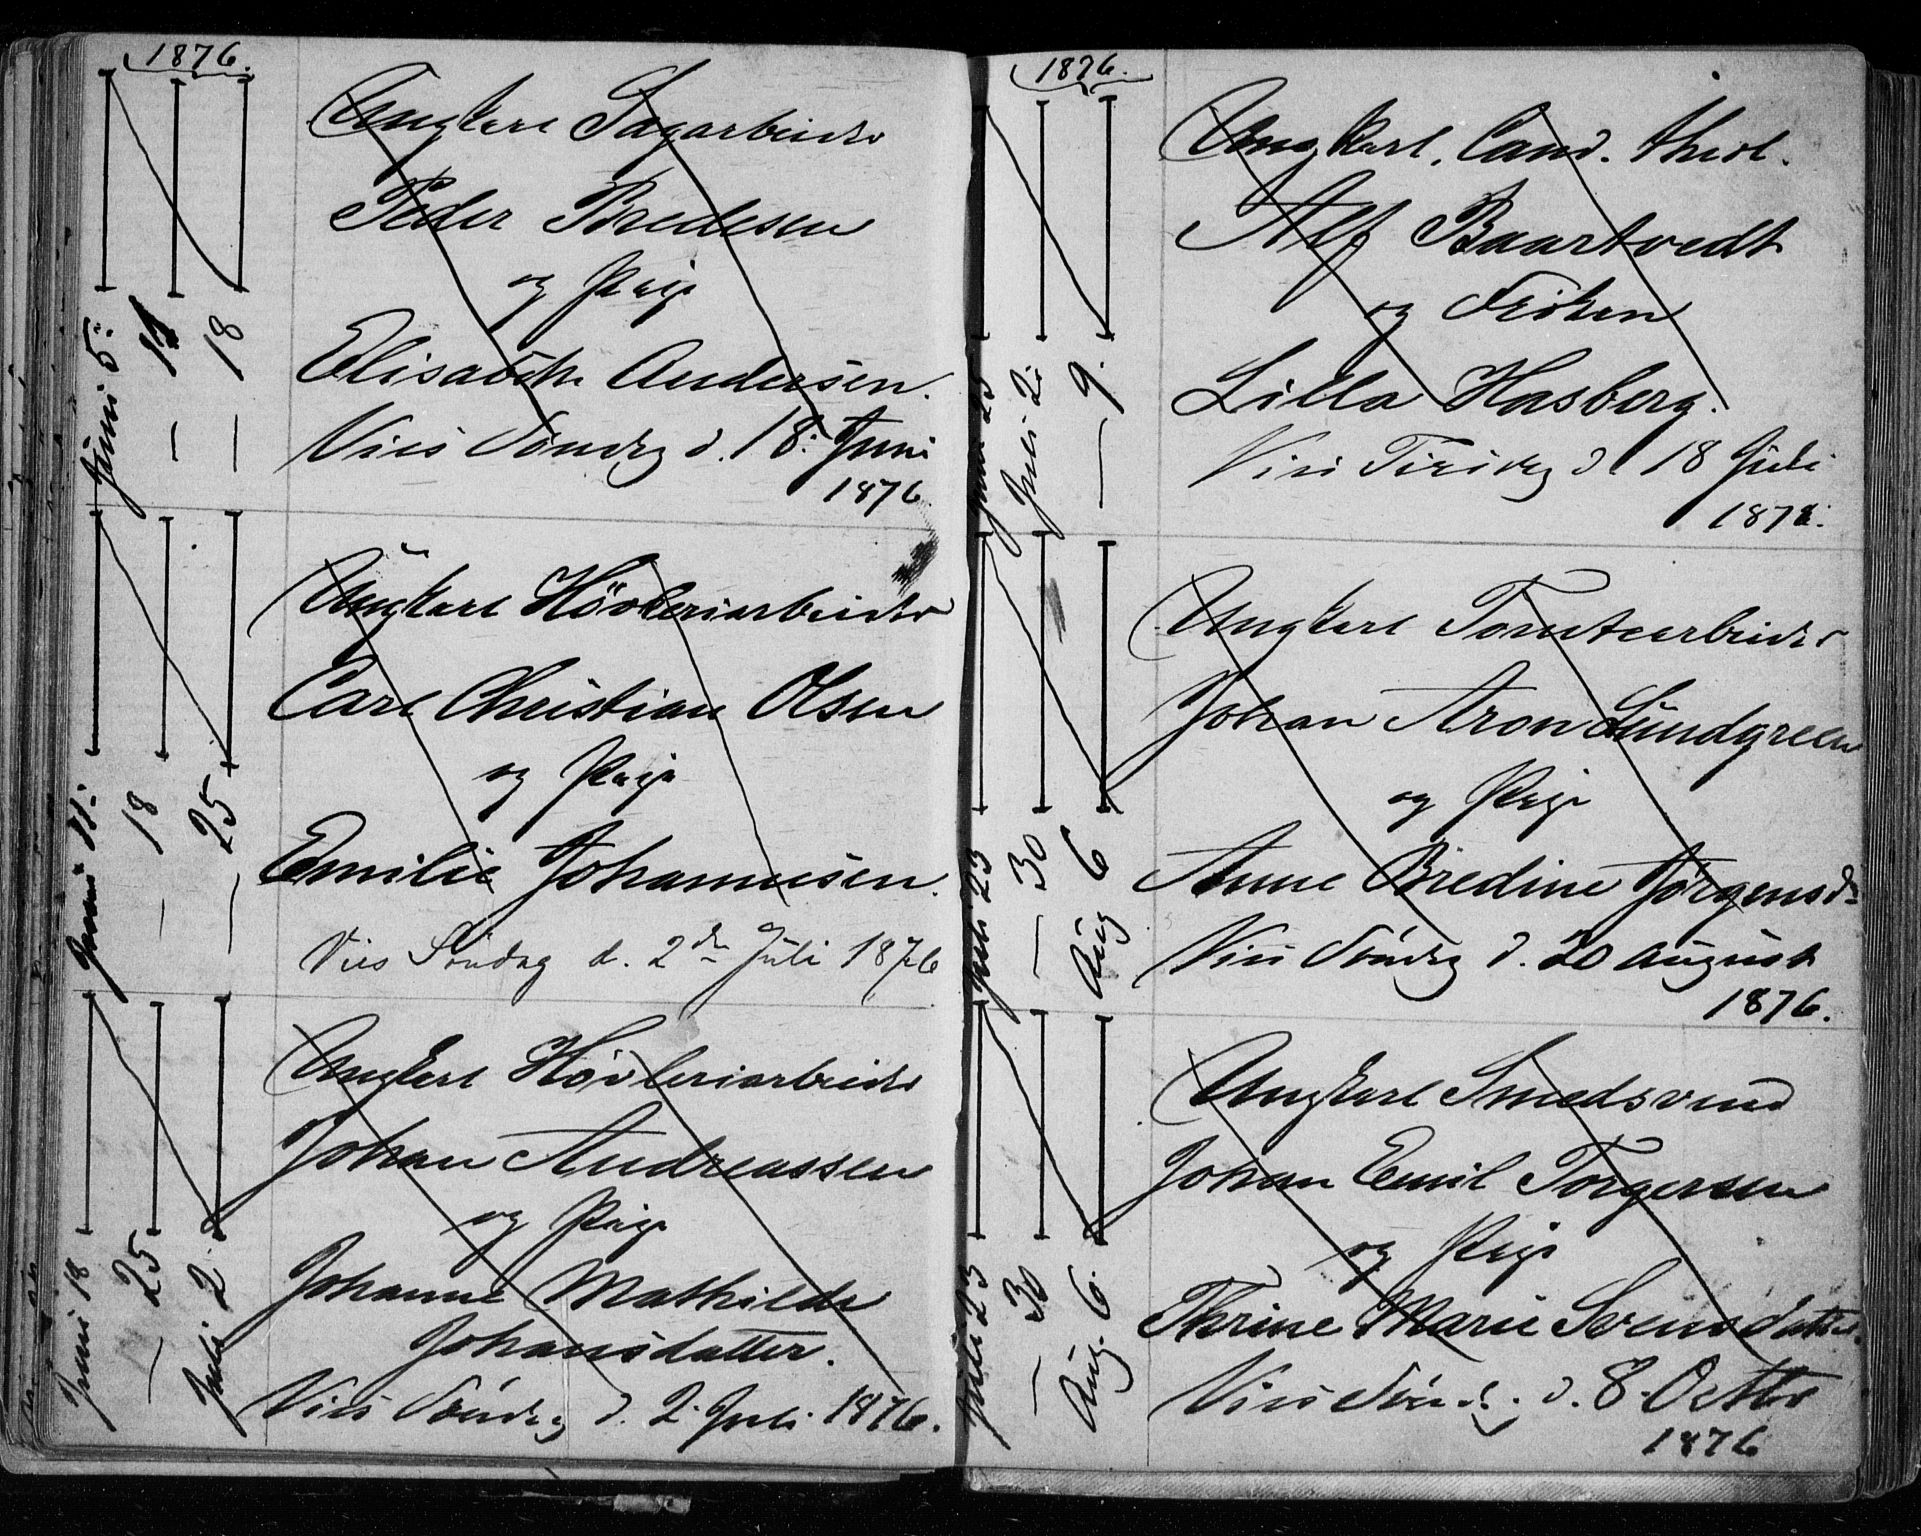 1876.
Juni 5.
— 11
— 18
Ungkarl Sagarbeider
Peder Bredesen
og Pige
Elisabeth Andersen.
Vies Søndag d. 18. Juni
1876
Juni 11.
— 18
— 25
Ungkarl Høvleriarbeider
Carl Christian Olsen
og Pige
Emilie Johannesen.
Vies Søndag d. 2den Juli 1876
Juni 18
— 25
Juli 2
Ungkarl Høvleriarbeider
Johan Andreassen
og Pige
Johanne Mathilde
Johansdatter.
Vies Søndag d. 2. Juli 1876.
1876.
Juni 25
Juli 2.
— 9.
Ungkarl, Cand. theol.
Alf Baartvedt
og Frøken
Lilla Hasberg.
Vies Tirsdag d. 18 Juli
1876.
Juli 23
— 30
Aug 6
Ungkarl Tomtearbeider
Johan Aron Lundgreen
og Pige
Anne Bredine Jørgensd.
Vies Søndag d. 20 August
1876.
Juli 23
— 30
Aug. 6.
Ungkarl Smedsvend
Johan Emil Torgersen
og Pige
Thrine Marie Svendsdatter
Vies Sønd. d. 8. Octbr
1876